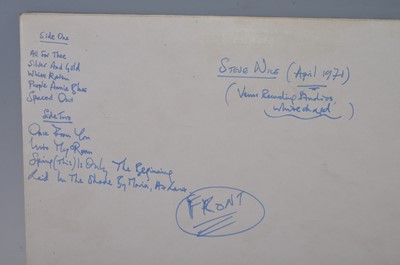 Side One
All For Thee
Silver And Gold
White Rain
Purple Annie Blues
Spaced Out
Side Two
Once From You
Into My Room
Spring (This) Is Only The Beginning
Laid In The Shade By Maria,
STEVE (April 1971)
( Venus Recording Studios,
Whitechapel )
FRONT